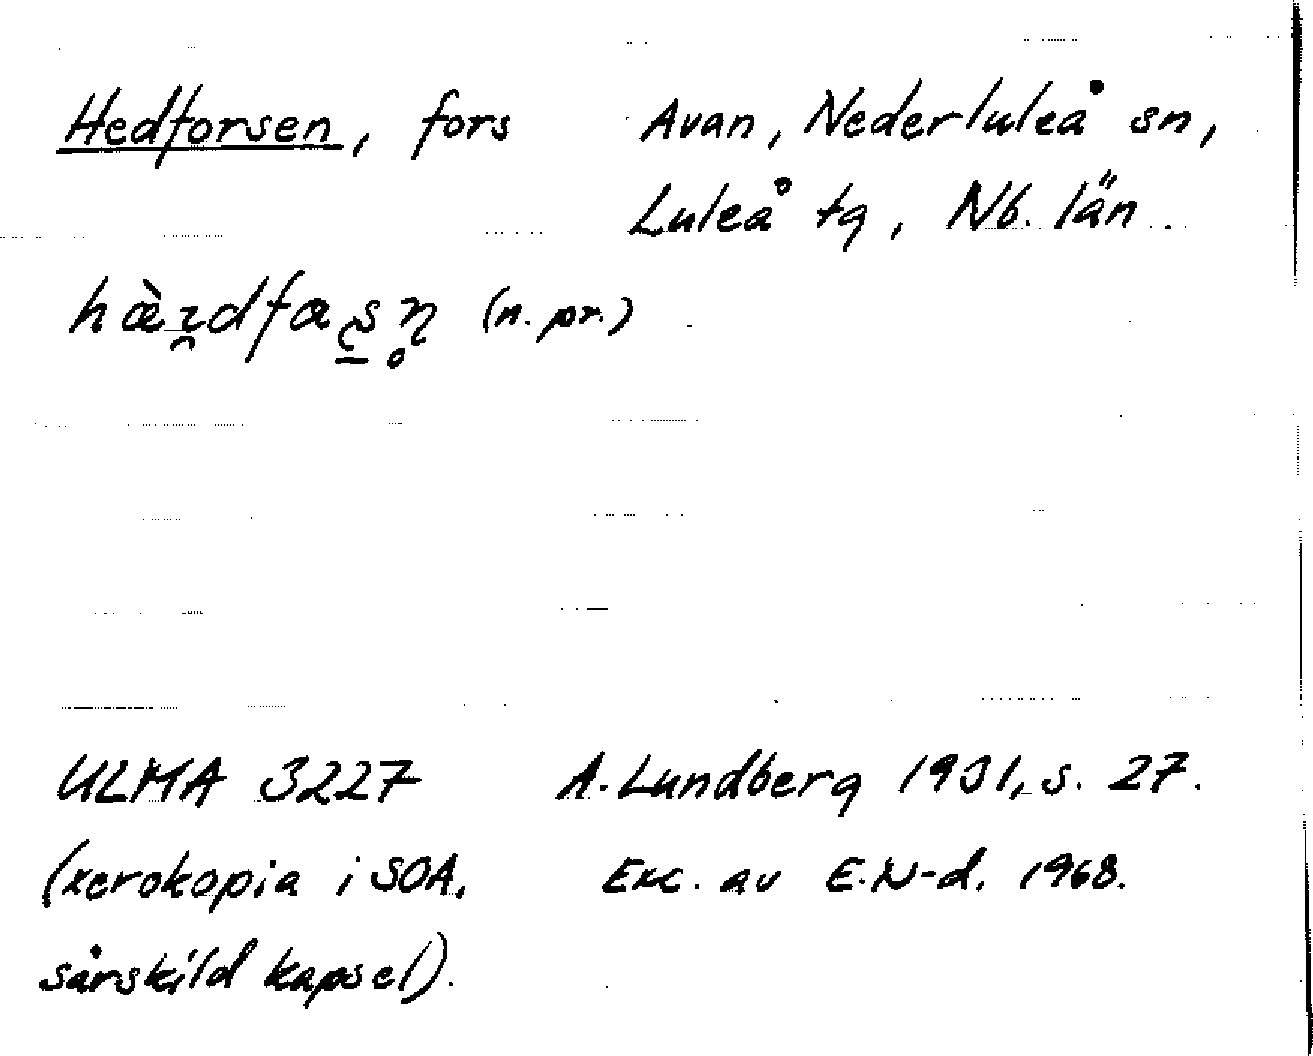 Hedforsen, fors Avan, Nederluleå sn,
Luleå tg, Nb. län.
(n. pr.)
ULMA 3227 A. Lundberg 1931, s. 27.
(xerokopia i SOA, Exc. av E.N-d. 1968.
särskild kapsel).